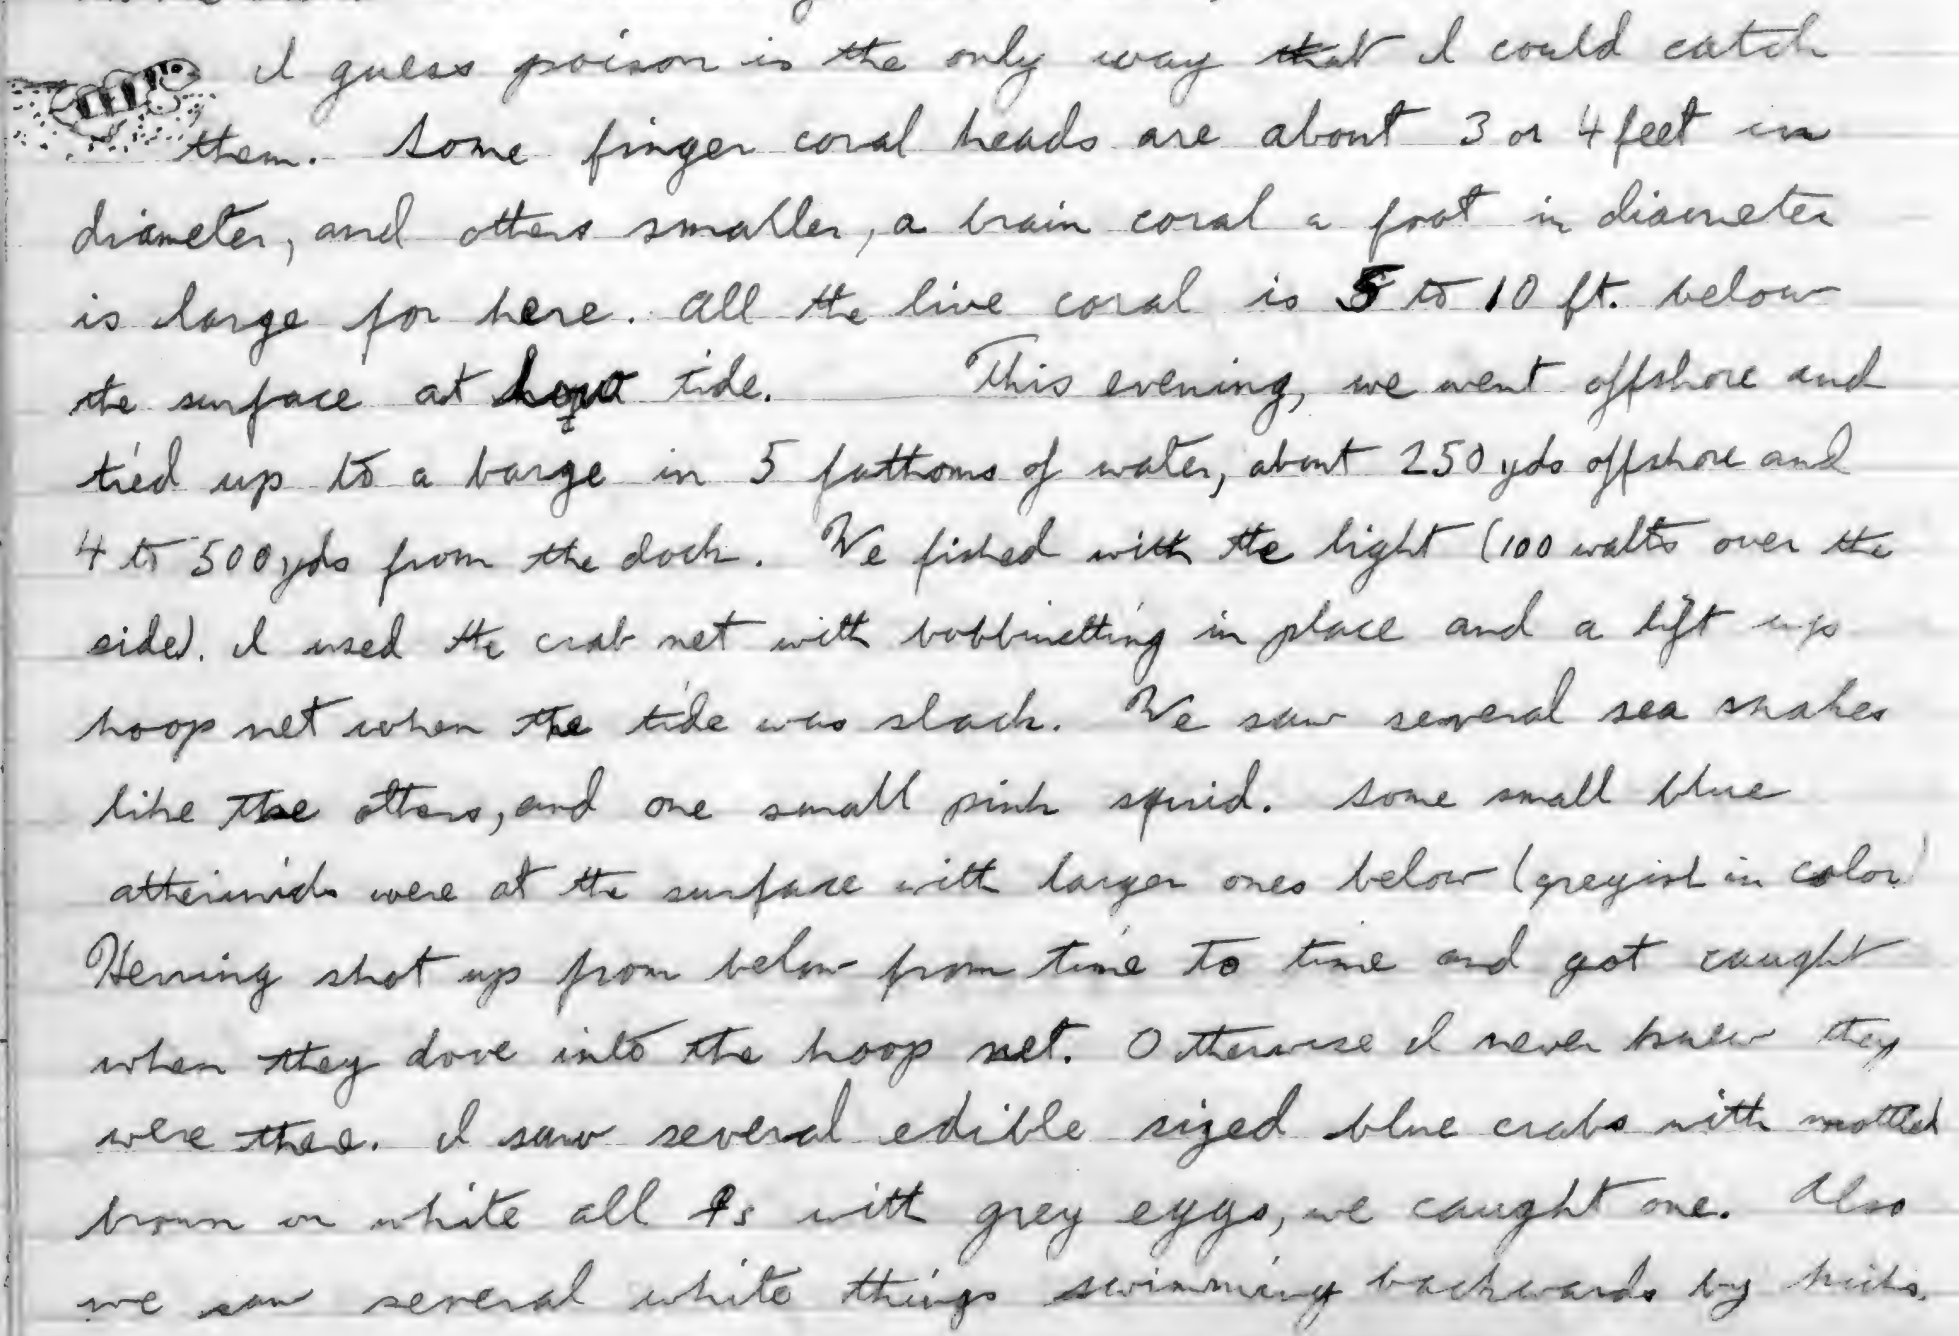 I guess poison is the only way that I could catch
them. Some finger coral heads are about 3 or 4 feet in
diameter, and others smaller, a brain coral a foot in diameter
is large for here. All the live coral is 5 to 10 ft. below
the surface at low tide. This evening, we went offshore and
tied up to a barge in 5 fathoms of water, about 250 yds offshore and
4 to 500 yds from the dock. We fished with the light (100 watts over the
side). I used the crab net with bobbinetting in place and a lift up
hoop net when the tide was slack. We saw several sea snakes
like the others, and one small pink squid. Some small blue
atherinids were at the surface with larger ones below (greyish in color)
Herring shot up from below from time to time and got caught
when they dove into the hoop net. Otherwise I never knew they
were there. I saw several edible sized blue crabs with mottled
brown on white all ♀s with grey eggs, we caught one. Also
we saw several white things swimming backwards by kicks.